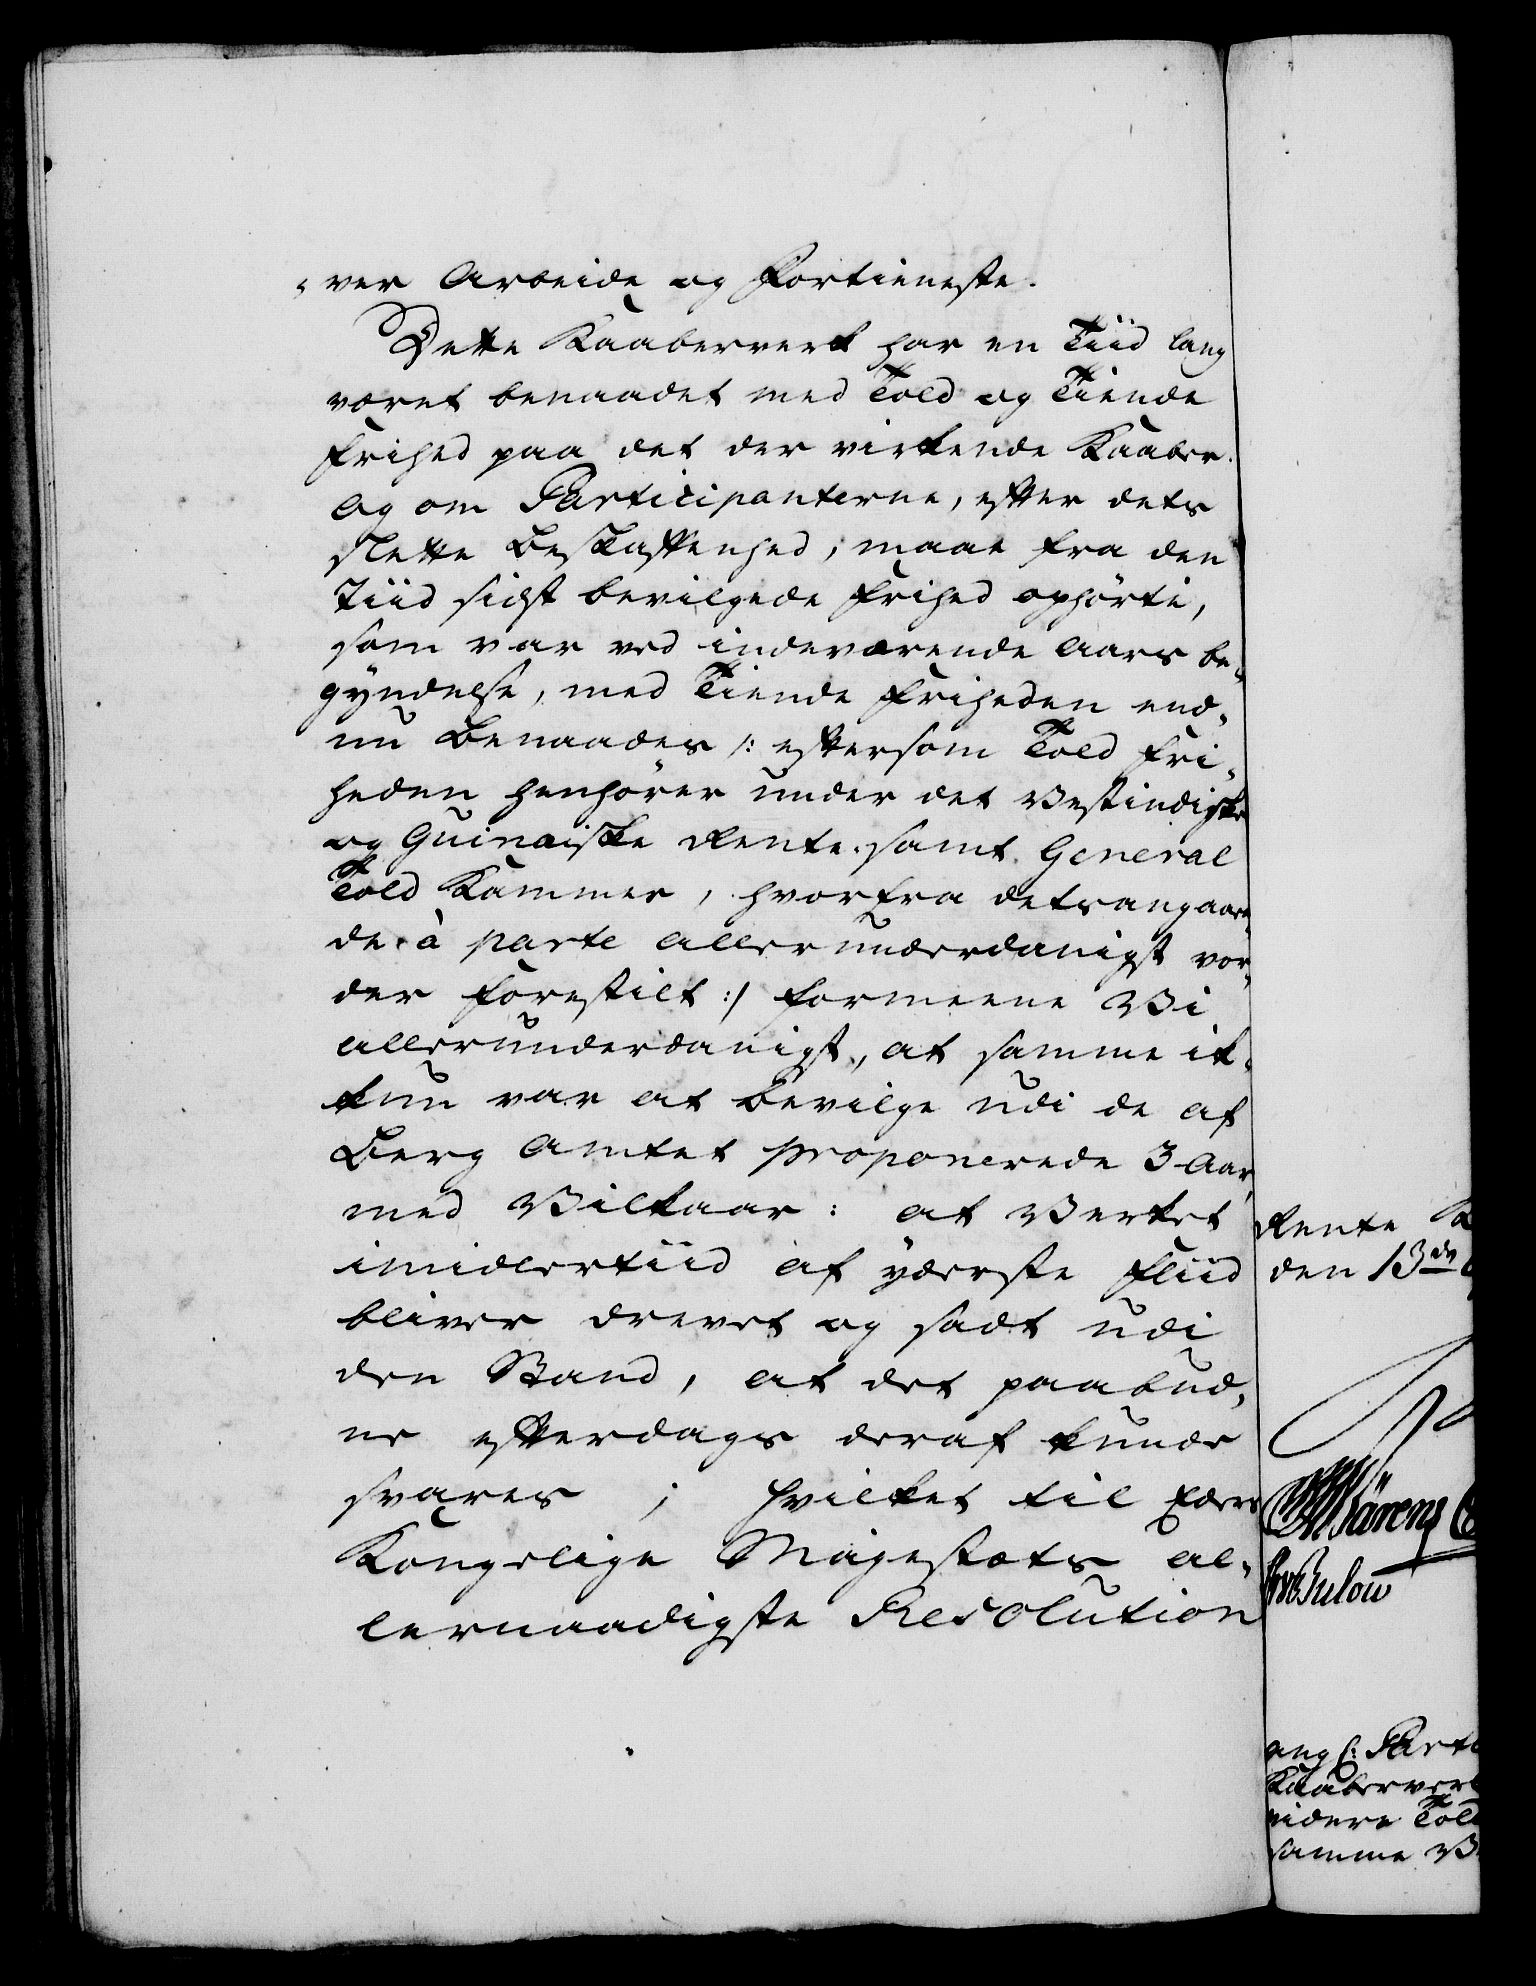 "ver Arbeide og Fortieneste.
Dette Kaaberverk har en Tiid lang
været benaadet med Told og Tiende
Frihed paa det der virkende Kaaber.
Og om Participanterne, efter dets
slette Beskaffenhed, maae fra den
Tiid sidst bevilgede Frihed ophørte,
som var ved indeværende Aars be"
gyndelse, med Tiende Friheden end"
nu Benaades /: eftersom Told Fri"
heden henhører under det Vestindiske
og Guineiske Rente- samt General
Told Kammer, hvorfra detsangaaen"
de à parte allerunderdanigst vor"
der forestilt :/ formeene Vi
allerunderdanigst, at samme ik"
kun var at bevilge udi de af
Berg Amtet proponerede 3 Aar,
med Vilkaar: at Verket
imidlertiid af yderste Fliid
bliver drevet og sadt udi
den Stand, at det paabud"
ne efterdags deraf kunde
svares; hvilket til Eders
Kongelige Mayestæts al"
lernaadigste Resolution
Rente K
den 13de
Bülow
ang: Parti
Kaaberverk
videre Told
samme V